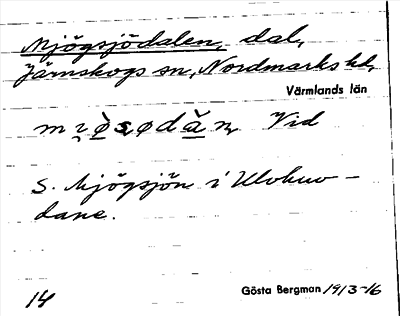 Mjögsjödalen, dal,
Järnskogs sn, Nordmarks hd,
Värmlands län
Vid
S. Mjögsjön i
dane.
Gösta Bergman 1913-16
14